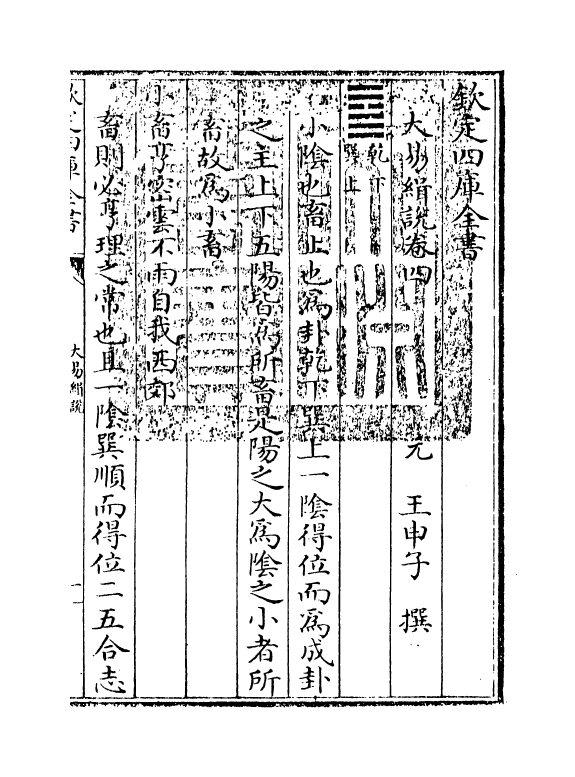 欽定四庫全書
大易緝說卷四 元 王申子 撰
䷈ 乾下巽上
小陰也畜止也為卦乾下巽上一陰得位而為成卦
之主上下五陽皆為所畜是陽之大為陰之小者所
畜故為小畜
小畜亨密雲不雨自我西郊
畜則必亨理之常也且一陰巽順而得位二五合志
欽定四庫全書 大易緝說 一